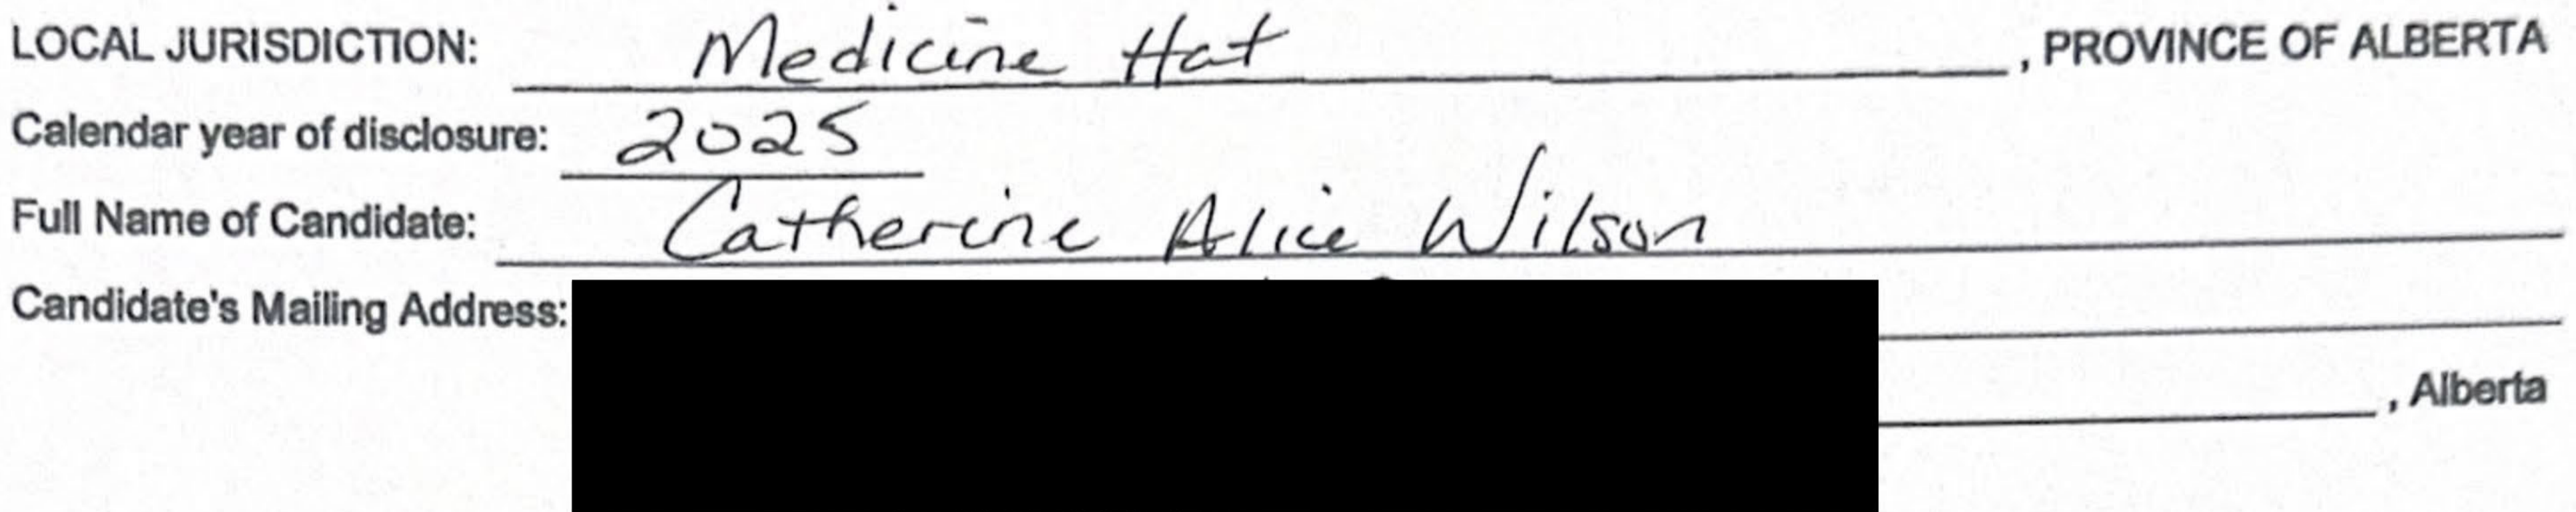 LOCAL JURISDICTION: Medicine Hat, PROVINCE OF ALBERTA
Calendar year of disclosure: 2025
Full Name of Candidate: Catherine Alice Wilson
Candidate's Mailing Address:
, Alberta